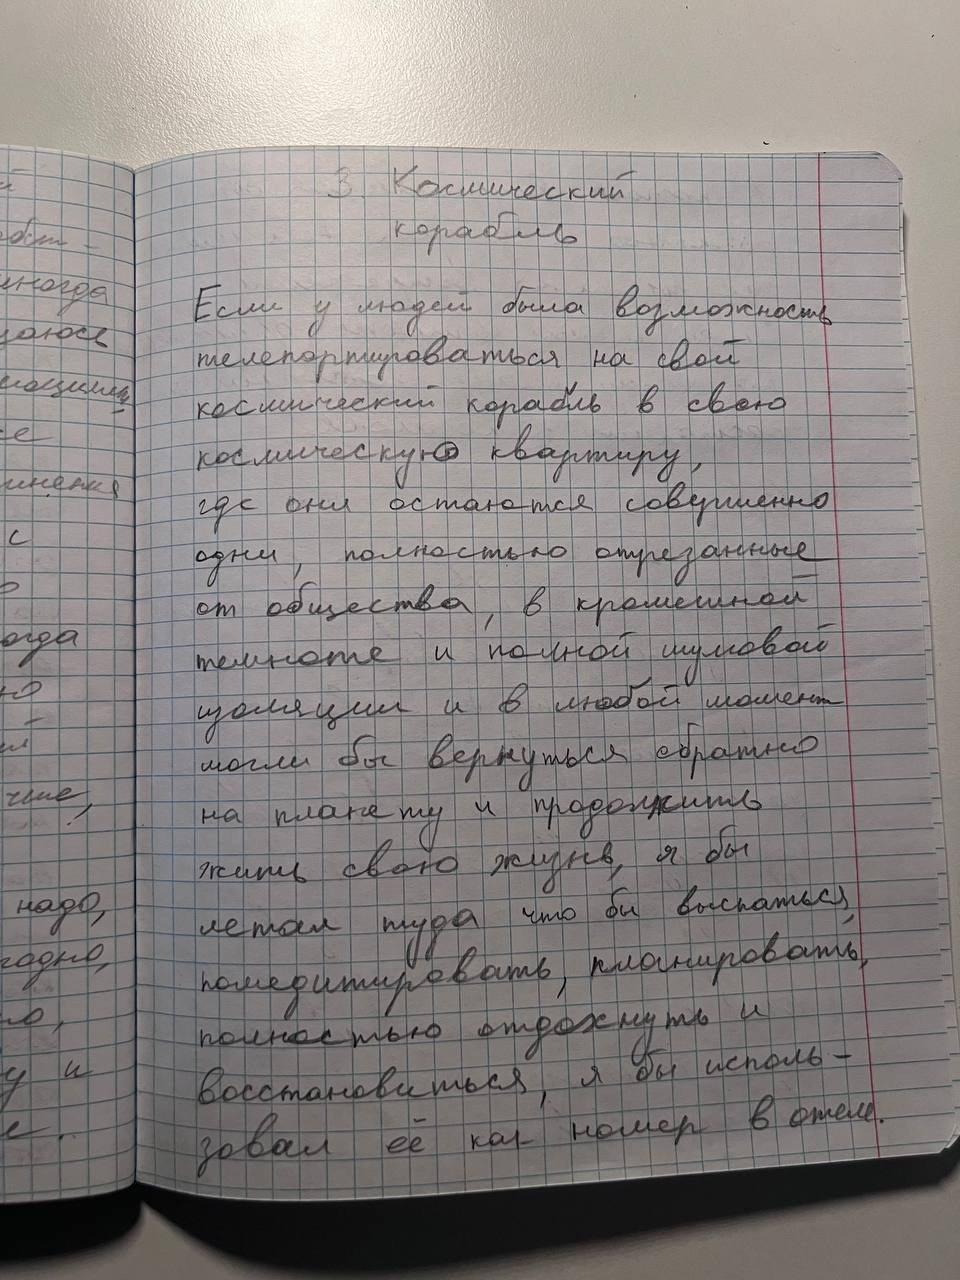 3. Космический
корабль
Если у людей была возможность
телепортироваться на свой
космический корабль в свою
космическую квартиру,
где они остаются совершенно
одни, полностью отрезанные
от общества, в кромешной
темноте и полной шумовой
изоляции и в любой момент
могли бы вернуться обратно
на планету и продолжить
жить свою жизнь, я бы
летал туда что бы выспаться,
помедитировать, планировать,
полностью отдохнуть и
восстановиться, я бы исполь-
зовал её как номер в отеле.
иногда
с
но
надо,
у и